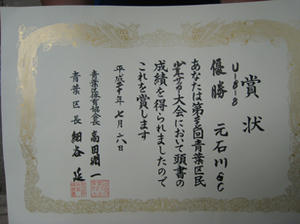 賞状
U-8-B
優勝 元石川SC
あなたは第 回青葉区民
大会において頭書の
成績を得られましたので
これを賞します
平成二十年七月六日
青葉区体育協会長 高田潤一
青葉区長 細谷延